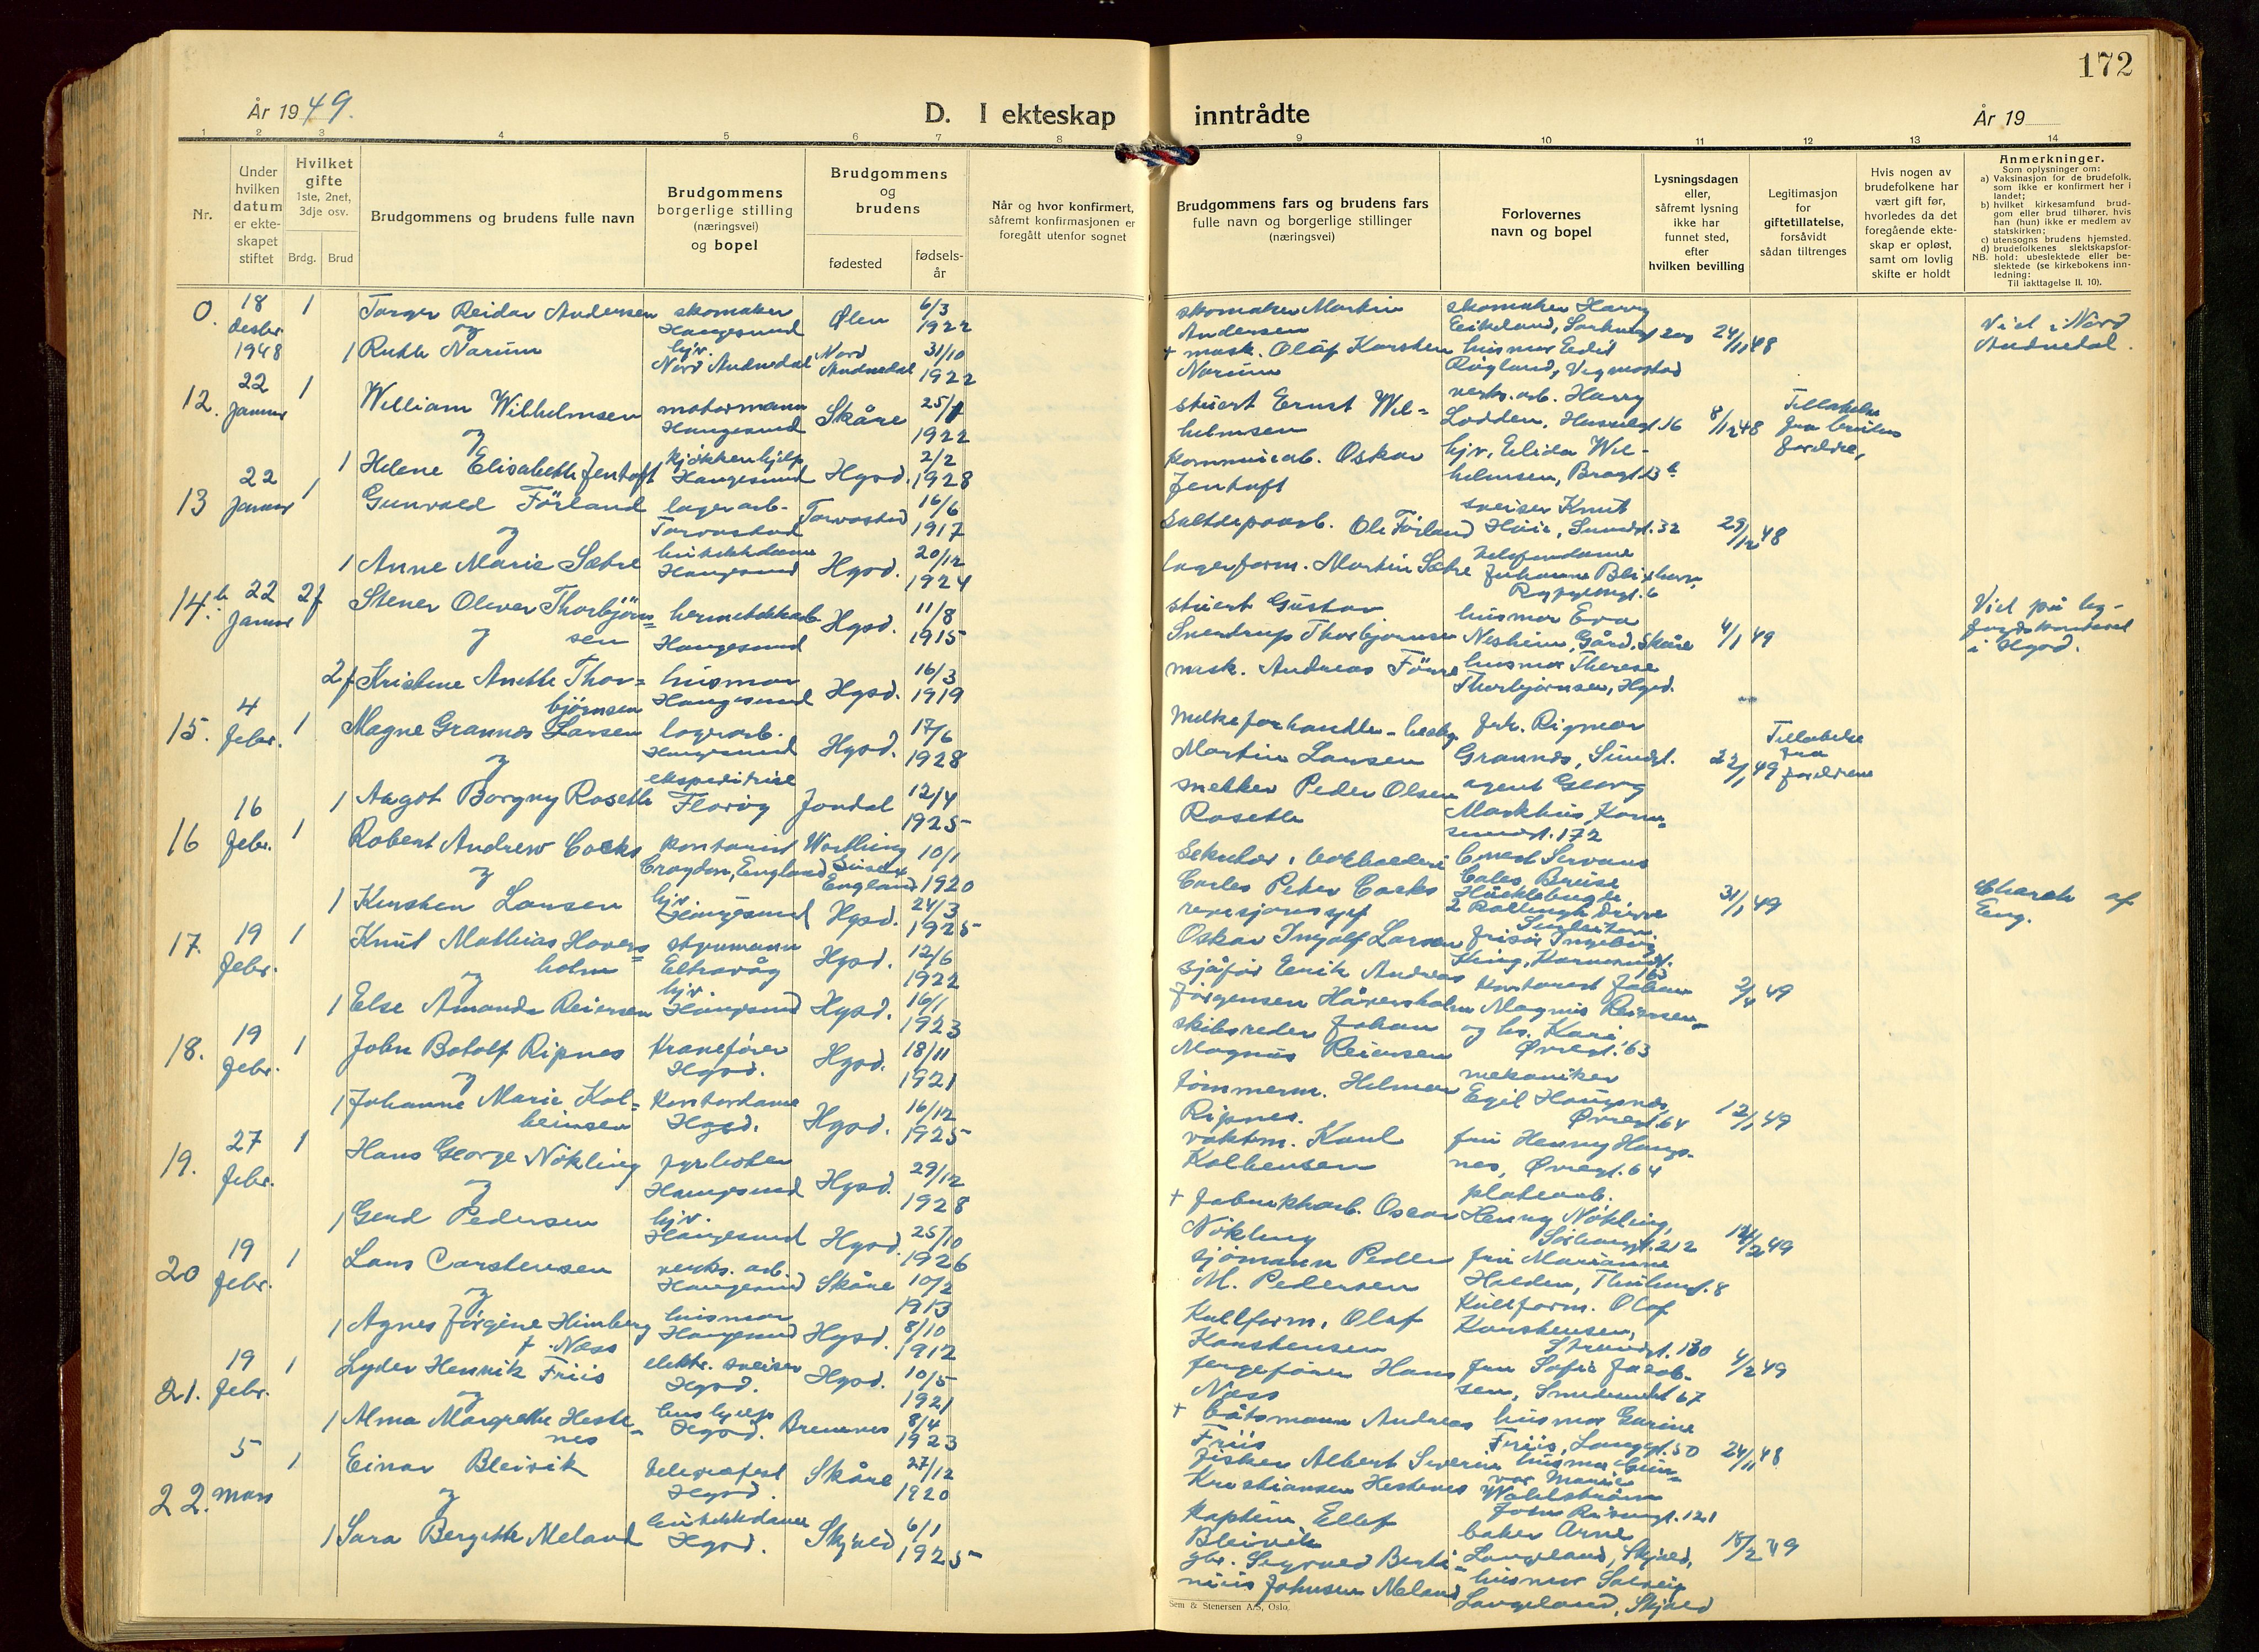 172
År 1949.
D. I ekteskap inntrådte
År 19
1 2 3 4 5 6 7 8 9 10 11 12 13 14
Nr.
Under hvilken datum er ekte-skapet stiftet
Hvilket gifte 1ste, 2net, 3dje osv.
Brdg. Brud
Brudgommens og brudens fulle navn
Brudgommens borgerlige stilling (næringsvei) og bopel
Brudgommens og brudens
fødested
fødsels-år
Når og hvor konfirmert, såfremt konfirmasjonen er foregått utenfor sognet
Brudgommens fars og brudens fars fulle navn og borgerlige stillinger (næringsvei)
Forlovernes navn og bopel
Lysningsdagen eller, såfremt lysning ikke har funnet sted, efter hvilken bevilling
Legitimasjon for giftetillatelse, forsåvidt sådan tiltrenges
Hvis nogen av brudefolkene har vært gift før, hvorledes da det foregående ekte-skap er opløst, samt om lovlig skifte er holdt
Anmerkninger.
Som oplysninger om:
a) Vaksinasjon for de brudefolk, som ikke er konfirmert her i landet;
b) hvilket kirkesamfund brud-gom eller brud tilhører, hvis han (hun) ikke er medlem av statskirken;
c) utensogns brudens hjemsted.
d) brudefolkenes slektskapsfor-hold: ubeslektede eller be-slektede (se kirkebokens inn-ledning:
NB.
Til iakttagelse II. 10).
0. 18 desbr. 1948 1 Torger Reidar Andersen skomaker Haugesund Ølen 6/3 1922
og
1 Ruth Narum hjv. Nord Audnedal Nord Audnedal 31/10 1922
skomaker Martin Andersen
+ mask. Olaf Karsten Narum
skomaker Harry Eikeland,
husmor Edit Røgland, Vigmostad
24/11 48
Viet i Nord Audnedal.
12. 22 Januar 1 William Wilhelmsen motormann Haugesund Skåre 25/7 1922
og
1 Helene Elisabeth Jentoft kjøkkenhjelp Haugesund Hgsd. 2/2 1928
stuert Ernst Wil=helmsen
kommunearb. Oskar Jentoft
verks.arb. Harry Lodden, Hasselgt. 16
hjv. Elida Wil-helmsen,
8/12 48
Tillatelse fra brudens foreldre,
13 22 Januar 1 Gunvald Förland lagerarb. Torvastad Torvastad 16/6 1917
og
1 Anne Marie Sætre butikkdame Haugesund Hgsd. 20/12 1924
Ole Förland
lagerform. Martin Sætre
sveiser Knut
telefondame Johanne Blikshavn,
29/12 48
14. 22 Januar 2f Stener Oliver Thorbjörn=sen hermetikkarb. Haugesund Hgsd. 11/8 1915
og
2f Kristine Anette Thor=björnsen husmor Haugesund Hgsd. 16/3 1919
stuert Gustav Svendrup Thorbjørnsen
mask. Andreas Fönne
husmor Eva Nesheim, Gård, Skåre
husmor Therese Thorbjørnsen, Hgsd.
4/1 49
Viet på by-
i Hgsd.
15. 4 febr. 1 Magne Grannes Larsen lagerarb. Haugesund Hgsd. 17/6 1928
og
1 Aagot Borgny Roseth ekspeditrise Florvåg Jondal 12/4 1925
Melkeforhandler Martin Larsen
snekker Peder Olsen Roseth
frk. Rigmor Grannes, Sundgt.
agent Georg Markhus, Karm=sundgt. 172
22/1 49
Tillatelse fra foreldrene
16 16 febr. 1 Robert Andrew Cocks kontorist Croydon, England Worthing Sussex England 10/1 1920
og
1 Kirsten Larsen hjv. Haugesund Hgsd. 24/3 1925
Carles Peter Cocks
Oskar Ingolf Larsen
frisør Ingeborg King,
31/1 49
Church of Eng.
17. 19 febr. 1 Knut Mathias Havers=holm styrmann Hgsd. 12/6 1922
og
1 Else Amanda Reiersen hjv. Haugesund Hgsd. 16/1 1923
sjåfør Erik Andreas Jørgensen Håversholm
skibsreder Johan Magnus Reiersen
kontorist Johan Magnus Reiersen
og hs. Kari Øvregt. 63
2/4 49
18. 19 febr. 1 John Botolf Ripnes kranefører Hgsd. Hgsd. 18/11 1921
og
1 Johanne Marie Kol=beinsen kontordame Hgsd. Hgsd. 16/12 1925
tømmerm. Helmer Ripnes.
vaktm. Karl Kolbensen
mekaniker Egil Haugsnes Øvregt. 64
fru Henny Haugs-nes, Øvregt. 64
12/1 49
19. 27 febr. 1 Hans George Nökling fyrbøter Haugesund Hgsd. 29/12 1928
og
1 Gerd Pedersen hjv. Haugesund Hgsd. 25/10 1926
+ fabrikkarb. Oscar Nökling
sjømann Peder M. Pedersen
platearb. Henry Nökling, Sørhauggt. 212
fru Marianne Halden,
14/2 49
20 19 febr. 1 Lars Carstensen verks. arb. Haugesund Skåre 10/2 1913
og
1 Agnes Jörgine Himberg f. Næss husmor Haugesund Hgsd. 8/10 1912
Kullform. Olaf Karstensen
fergefører Hans Næss
Kullform. Olaf Karstensen, Strandgt. 130
fru Sofie Jacob-sen, Smedesundet 67
4/2 49
21. 19 febr. 1 Lyder Henrik Friis elektr. sveiser Hgsd. Hgsd. 10/5 1921
og
1 Alma Margrethe Heste-nes hushjelp Hgsd. Bremnes 8/4 1923
+ båtsmann Andreas Friis
fisker Albert Severin Kristiansen Hestenes
husmor Gurine Friis, Langgt. 50
husmor Gun=vor Marie Wahlstrøm
24/11 48
22. 5 mars 1 Einar Bleivik telegrafist Hgsd. Skåre 27/12 1920
og
1 Sara Bergitte Meland butikkdame Hgsd. Skjold 6/1 1925
kaptein Ellef Bleivik
gbr. Sigvald Berti=nius Johnsen Meland
baker Arne Langeland, Skjold,
husmor Solveig Langeland, Skjold
18/2 49
Sem & Stenersen A/S, Oslo.